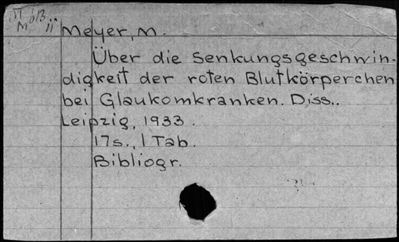 Meyer, M.
Über die Senkungsgeschwin-
digkeit der roten Blutkörperchen
bei Glaukomkranken. Diss..
Leipzig, 1933.
17s., 1 Tab.
Bibliogr.